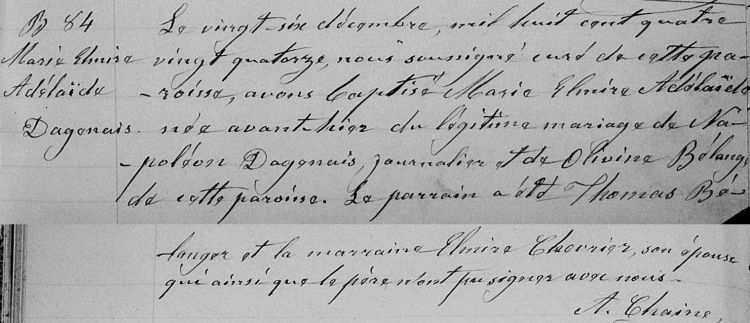 B 84
Marie Elmire
Adélaïde
Dagenais.
Le vingt-six décembre, mil huit cent quatre
vingt quatorze, nous soussigné curé de cette pa-
-roisse, avons baptisé Marie Elmire Adélaïde
née avant-hier du légitime mariage de Na-
-poléon Dagenais, journalier et de Olivine Bélange
de cette paroisse. Le parrain a été Thomas Bé-
langer et la marraine Elmire Chevrier, son épouse
qui ainsi que le père n'ont pu signer avec nous-
A. Chaine,